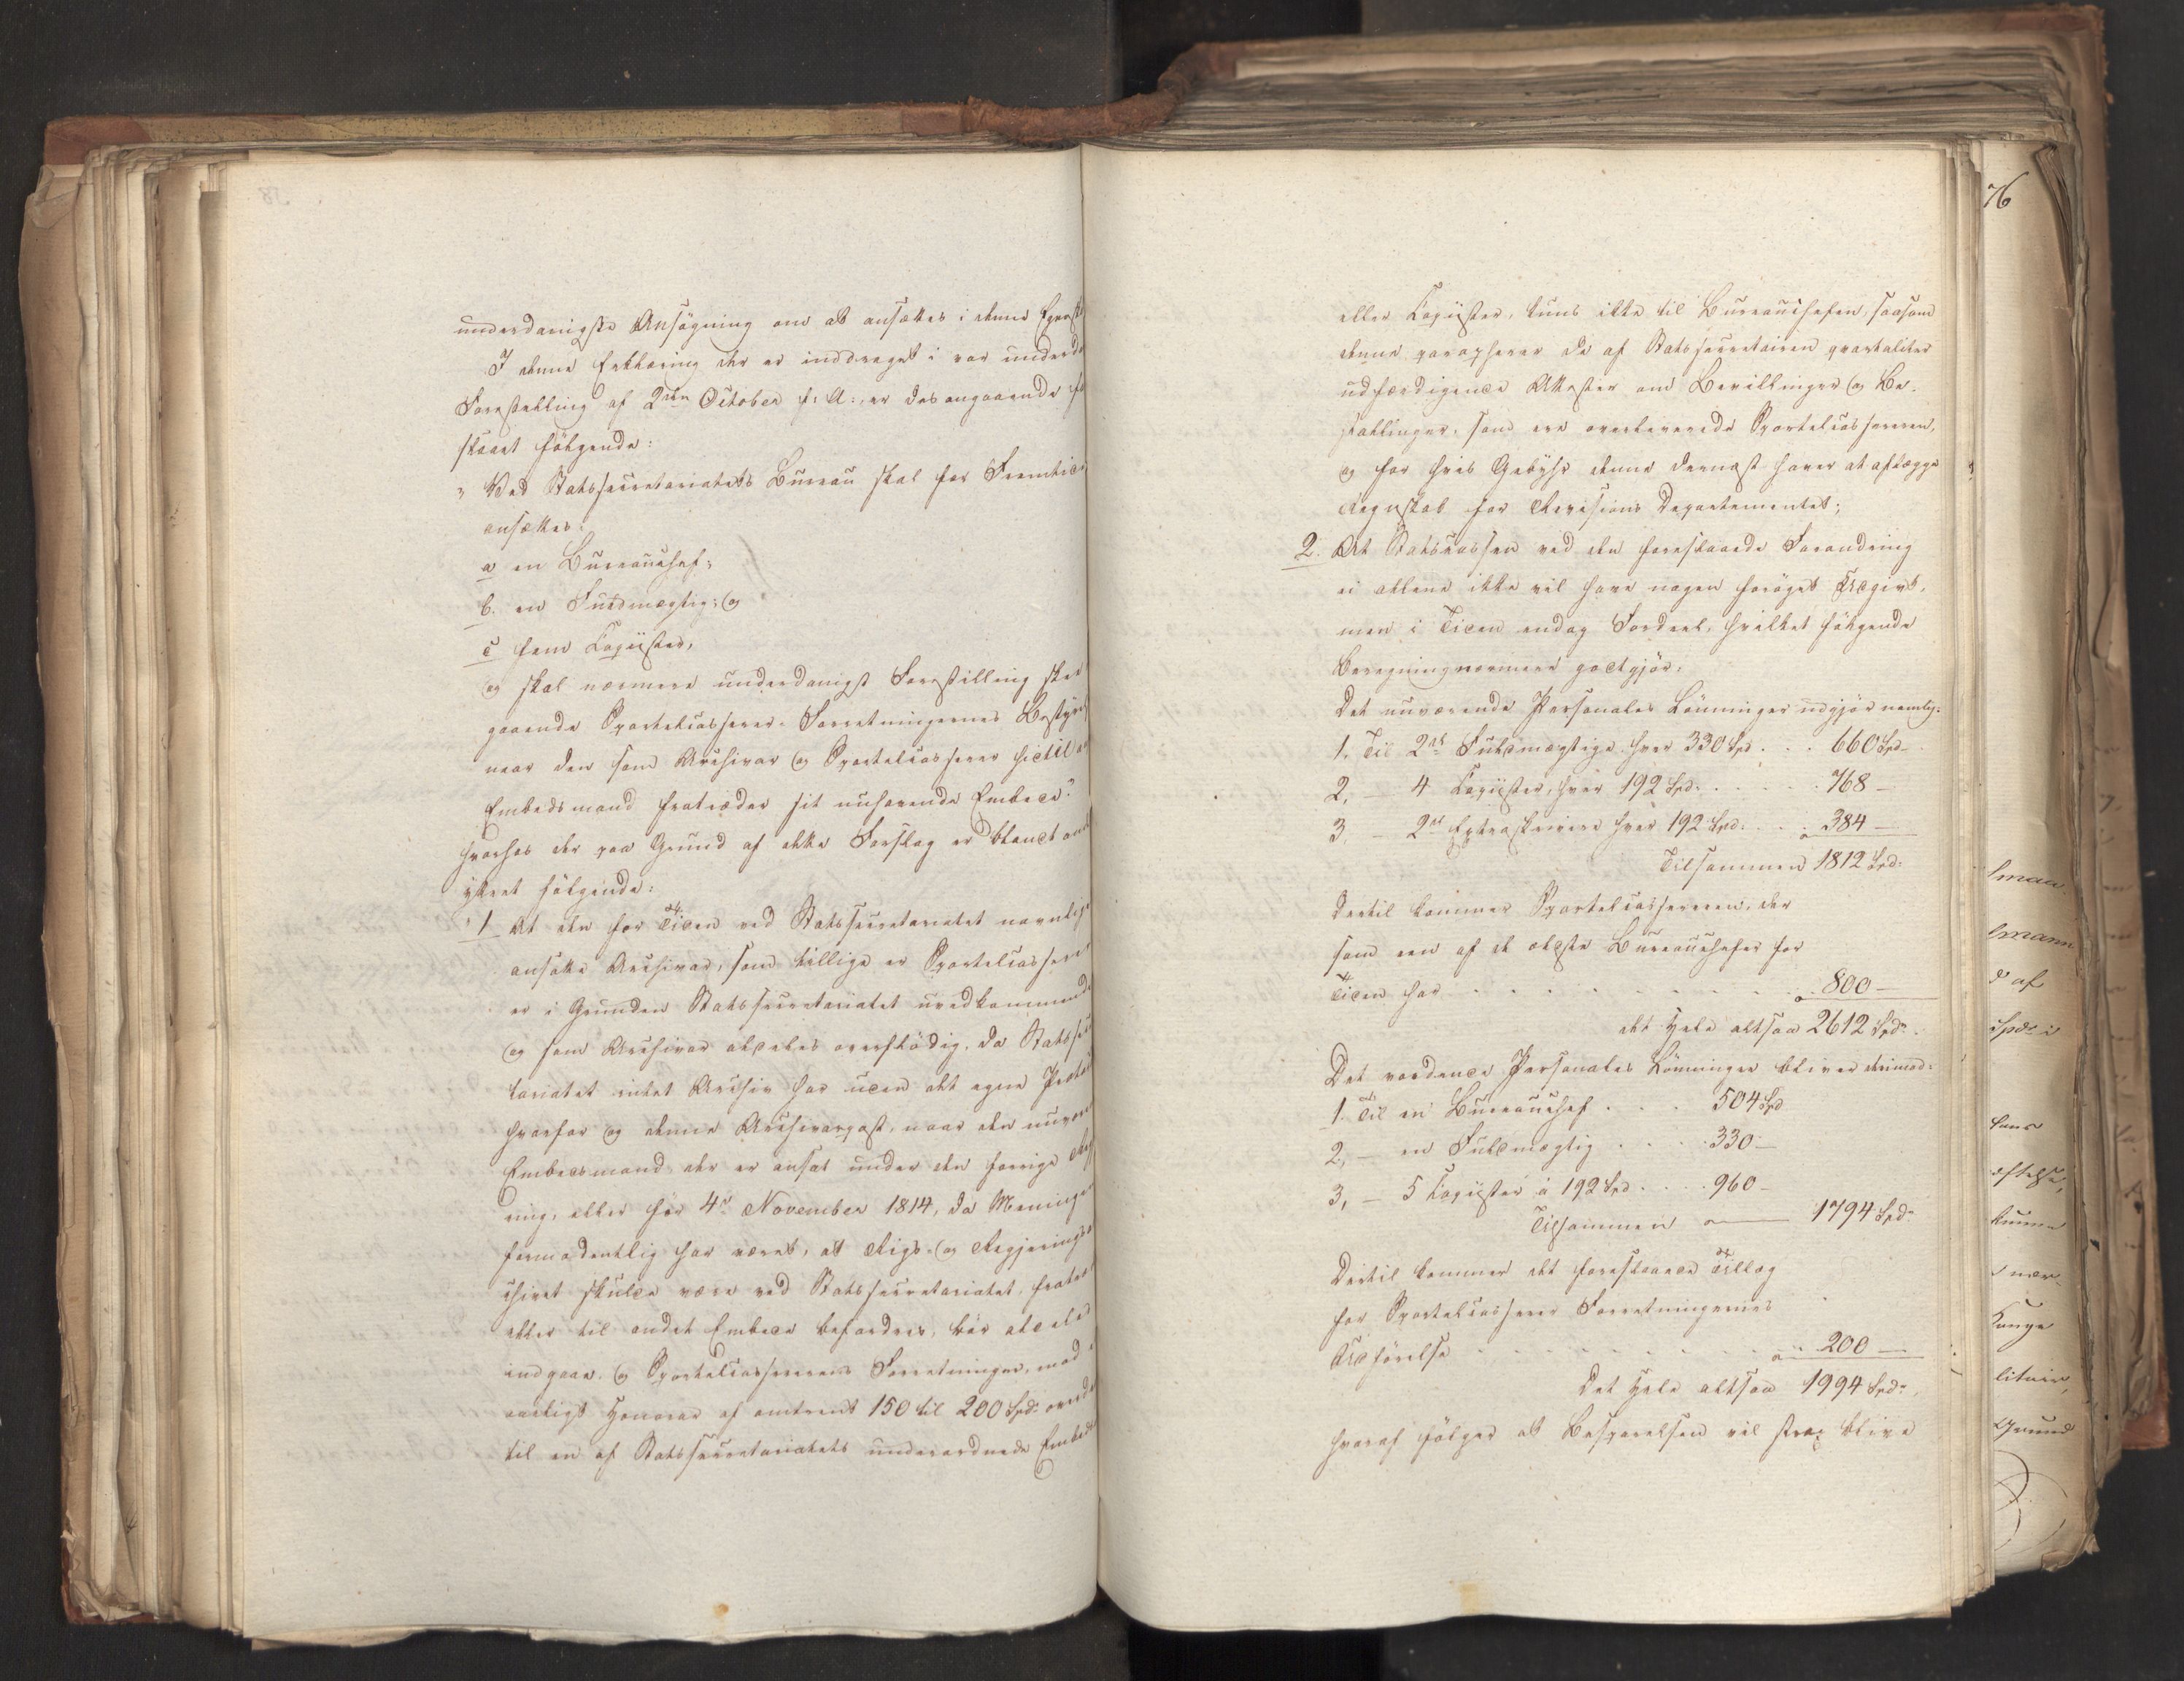 underdanigste Ansøgning om at ansættes i denne
I denne Erklæring der er inddraget i vor
Forestilling af 2den October f: A:, er desangaaende
følgende:
" Ved Statssecretariatets Bureau skal for Fremtiden
ansættes:
a en Bureauchef;
b. en Fuldmægtig; og
c fem Copiister,
og skal nærmere underdanigst Forestilling skee
gaaende Sportelcasserer-Forretningernes
naar den som Archivar og Sportelcasserer
Embedsmand fratræder sit nuhavende Embede."
hvorhos der paa Grund af dette Forslag er blandt
yttret følgende:
" 1 At den for Tiden ved Statssecretariatet
ansatte Archivar, som tillige er
er i Grunden Statssecretariatet uvedkommende
og som Archivar aldeles overflødig, da
tariatet intet Archiv har uden det egne
hvorfor og denne Archivarpost, naar den
Embedsmand der er ansat under den forrige
ning, eller før 4de November 1814, da Meningen
formodentlig har været, at Rigs- og
chivet skulde være ved Statssecretariatet,
eller til andet Embede befordres, bør aldeles
indgaae og Sportelcassererens Forretninger, mod
aarligt Honorar af omtrent 150 til 200 Spd:
til en af Statssecretariatets underordnede
76
eller Copiister, kuns ikke til Bureauchefen, saasom
denne parapherer de af Statssecretairen qvartaliter
udfærdigende Attester om Bevillinger og Be-
stallinger, som ere overleverede Sportelcassereren,
og for hvis Gebyhr denne dernæst haver at aflægge
Regnskab for Revisions Departementet;
2. At Statscassen ved den foreslaaede Forandring
ei allene ikke vil have nogen forøget Udgivt,
men i Tiden endog Fordeel, hvilket følgende
Beregning nærmere godtgjør:
Det nuværende Personales Lønninger udgjør nemlig:
1. Til 2de Fuldmægtige hver 330 Spd . . . 660 Spd
2, — 4 Copiister, hver 192 Spd: . . . . . 768 —
3, — 2de Extraskrivere hver 192 Spd: . . . 384 —
Tilsammen 1812 Spd:
Dertil kommer Sportelcassereren, der
som een af de ældste Bureauchefer for
Tiden har . . . . . . . . . 800 —
det Hele altsaa 2612 Spd:
Det vordende Personales Lønninger bliver derimod:
1. Til en Bureauchef . . . 504 Spd
2, — en Fuldmægtig . . . . 330 —
3, — 5 Copiister à 192 Spd . . . . 960 —
Tilsammen — 1794 Spd:
Dertil kommer det foreslaaede Tillæg
for Sportelcasserer Forretningernes
Udførelse . . . . . . . . . 200 —
Det Hele altsaa 1994 Spd:
hvoraf følger at Besparelsen vil strax blive